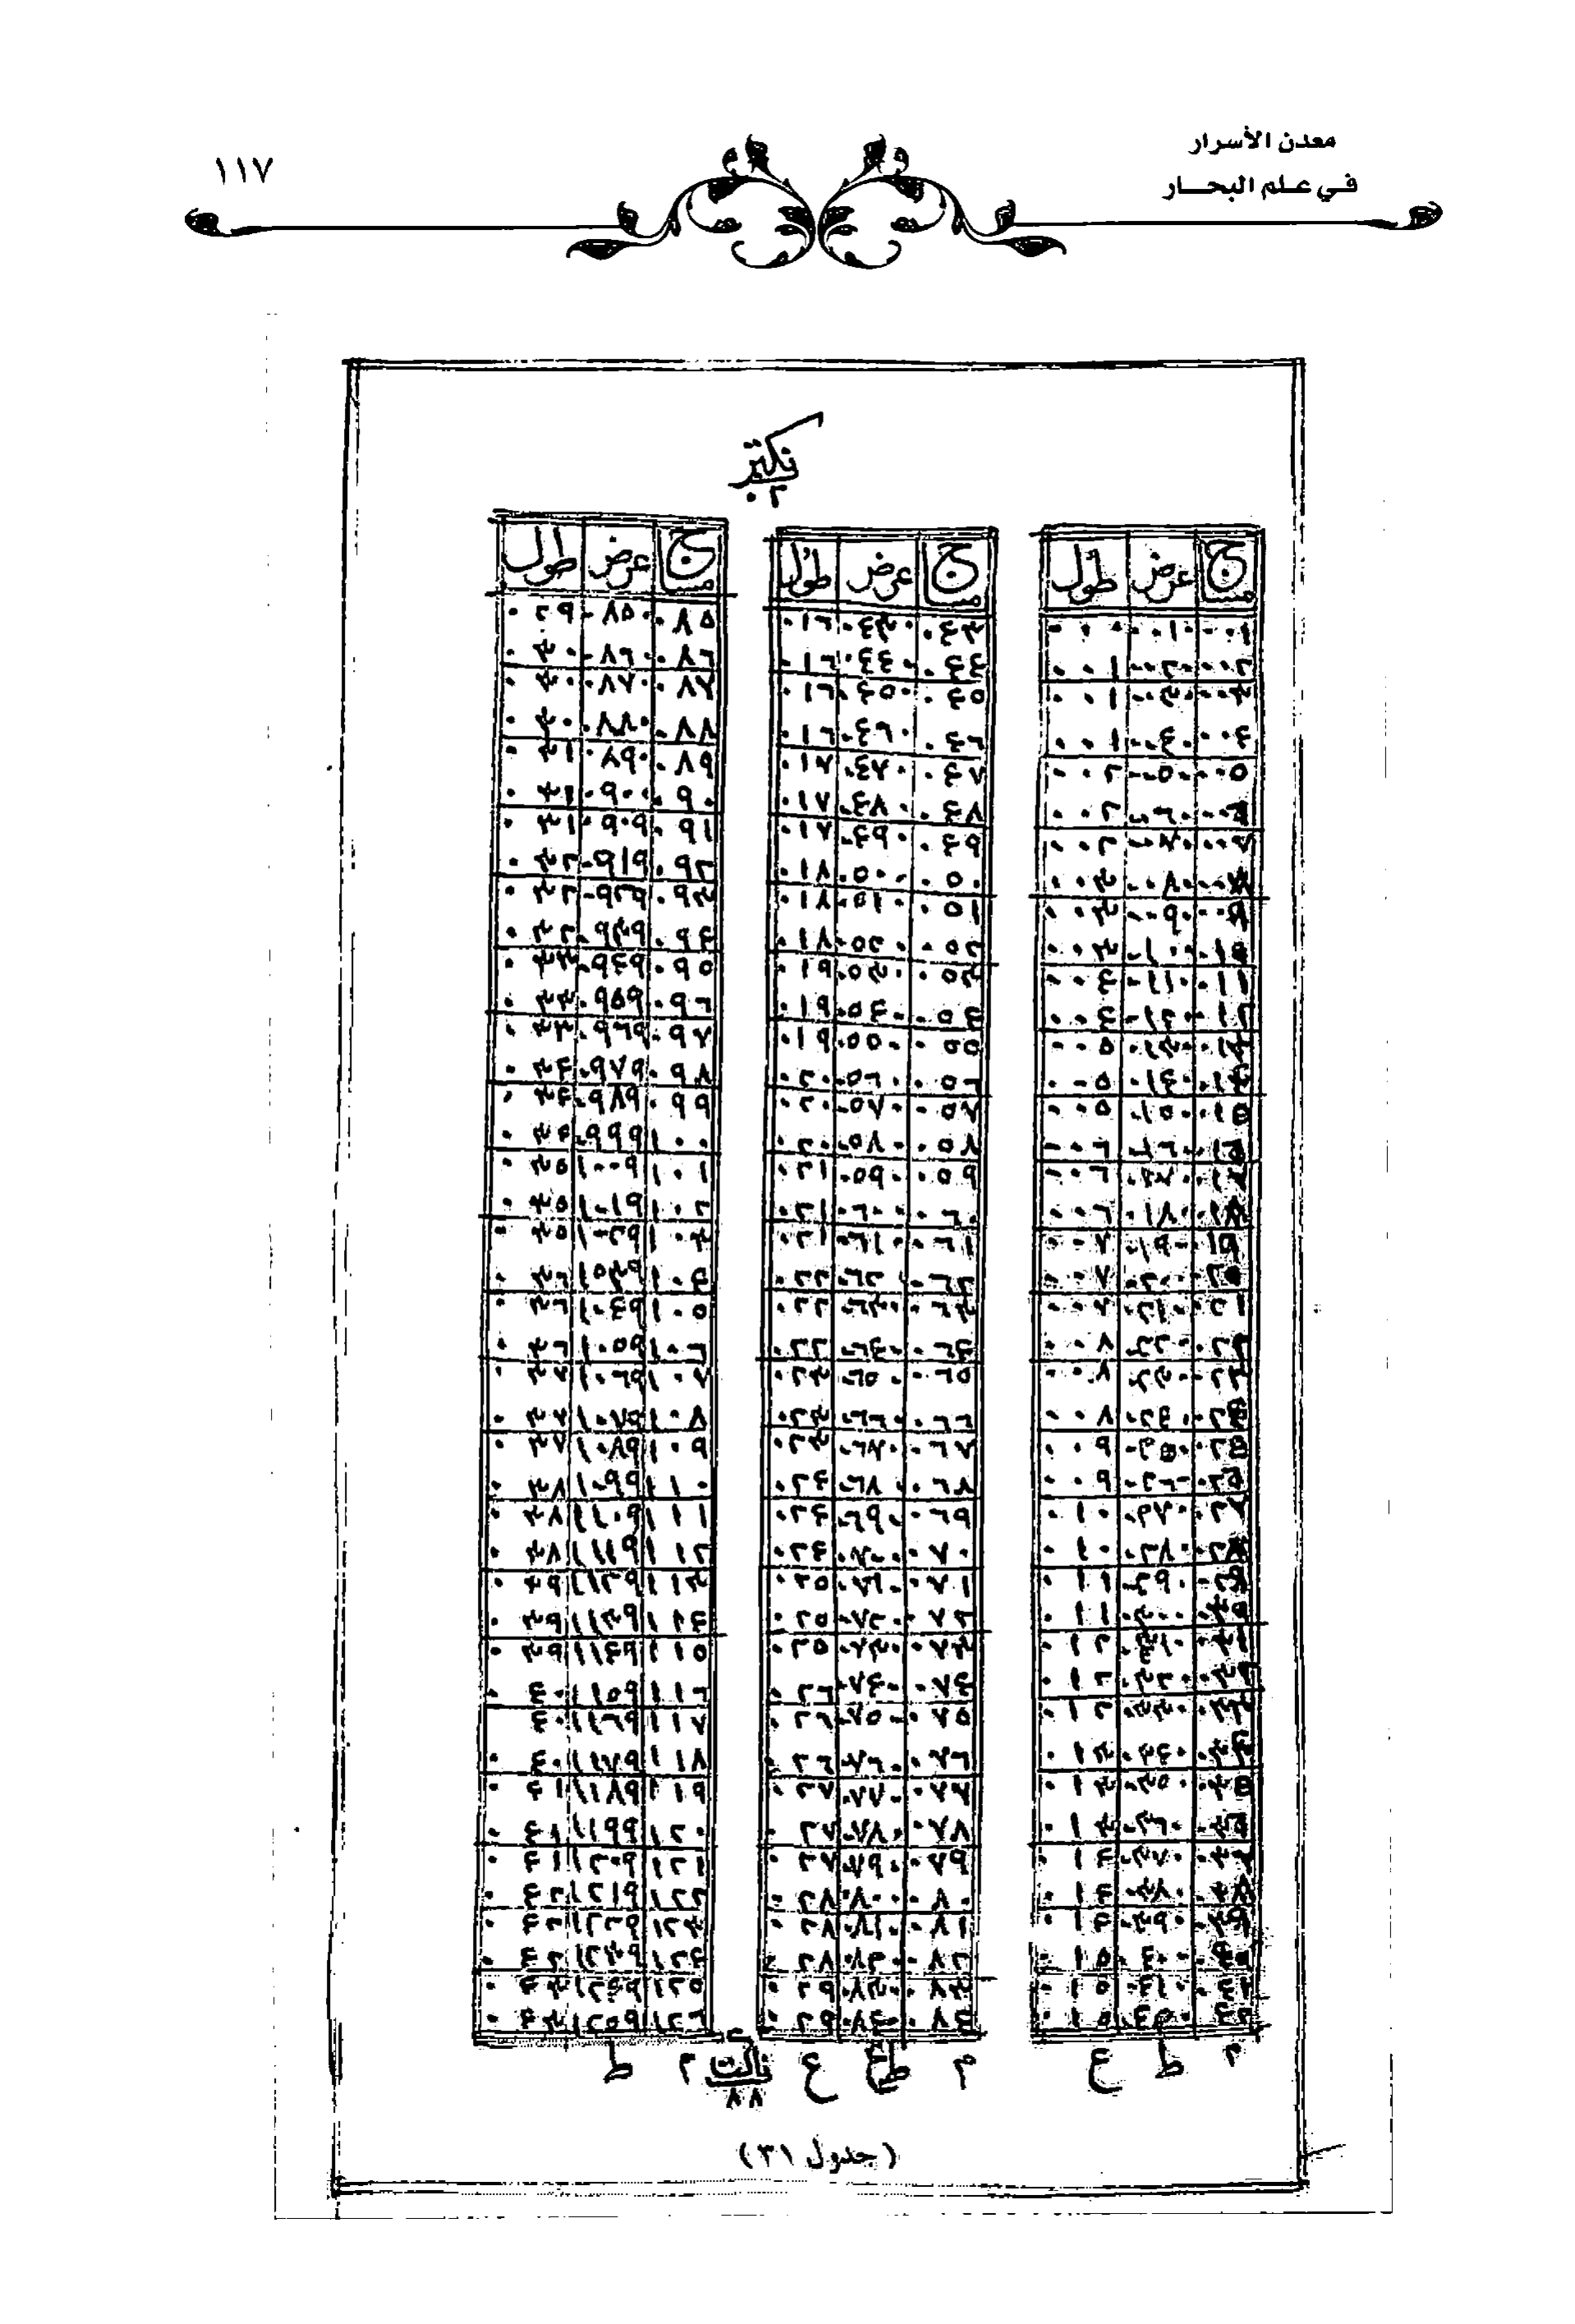 معدن الأسرار
في علم البحار
١١٧
نكتير
٠٢
مسا ج عرض طول
٠٠١ ٠٠١٠ ٠٠٠
٠٠٢ ٠٠٢٠ ٠٠١
٠٠٣ ٠٠٣٠ ٠٠١
٠٠٤ ٠٠٤٠ ٠٠١
٠٠٥ ٠٠٥٠ ٠٠٢
٠٠٦ ٠٠٦٠ ٠٠٢
٠٠٧ ٠٠٧٠ ٠٠٢
٠٠٨ ٠٠٨٠ ٠٠٣
٠٠٩ ٠٠٩٠ ٠٠٣
٠١٠ ٠١٠٠ ٠٠٣
٠١١ ٠١١٠ ٠٠٤
٠١٢ ٠١٢٠ ٠٠٤
٠١٣ ٠١٣٠ ٠٠٥
٠١٤ ٠١٤٠ ٠٠٥
٠١٥ ٠١٥٠ ٠٠٥
٠١٦ ٠١٦٠ ٠٠٦
٠١٧ ٠١٧٠ ٠٠٦
٠١٨ ٠١٨٠ ٠٠٦
٠١٩ ٠١٩٠ ٠٠٧
٠٢٠ ٠٢٠٠ ٠٠٧
٠٢١ ٠٢١٠ ٠٠٧
٠٢٢ ٠٢٢٠ ٠٠٨
٠٢٣ ٠٢٣٠ ٠٠٨
٠٢٤ ٠٢٤٠ ٠٠٨
٠٢٥ ٠٢٥٠ ٠٠٩
٠٢٦ ٠٢٦٠ ٠٠٩
٠٢٧ ٠٢٧٠ ٠١٠
٠٢٨ ٠٢٨٠ ٠١٠
٠٢٩ ٠٢٩٠ ٠١١
٠٣٠ ٠٣٠٠ ٠١١
٠٣١ ٠٣١٠ ٠١٢
٠٣٢ ٠٣٢٠ ٠١٢
٠٣٣ ٠٣٣٠ ٠١٢
٠٣٤ ٠٣٤٠ ٠١٣
٠٣٥ ٠٣٥٠ ٠١٣
٠٣٦ ٠٣٦٠ ٠١٣
٠٣٧ ٠٣٧٠ ٠١٤
٠٣٨ ٠٣٨٠ ٠١٤
٠٣٩ ٠٣٩٠ ٠١٤
٠٤٠ ٠٤٠٠ ٠١٥
٠٤١ ٠٤١٠ ٠١٥
٠٤٢ ٠٤٢٠ ٠١٥
م ط ع
مسا ج عرض طول
٠٤٣ ٠٤٣٠ ٠١٦
٠٤٤ ٠٤٤٠ ٠١٦
٠٤٥ ٠٤٥٠ ٠١٦
٠٤٦ ٠٤٦٠ ٠١٦
٠٤٧ ٠٤٧٠ ٠١٧
٠٤٨ ٠٤٨٠ ٠١٧
٠٤٩ ٠٤٩٠ ٠١٧
٠٥٠ ٠٥٠٠ ٠١٨
٠٥١ ٠٥١٠ ٠١٨
٠٥٢ ٠٥٢٠ ٠١٨
٠٥٣ ٠٥٣٠ ٠١٩
٠٥٤ ٠٥٤٠ ٠١٩
٠٥٥ ٠٥٥٠ ٠١٩
٠٥٦ ٠٥٦٠ ٠٢٠
٠٥٧ ٠٥٧٠ ٠٢٠
٠٥٨ ٠٥٨٠ ٠٢٠
٠٥٩ ٠٥٩٠ ٠٢١
٠٦٠ ٠٦٠٠ ٠٢١
٠٦١ ٠٦١٠ ٠٢١
٠٦٢ ٠٦٢٠ ٠٢٢
٠٦٣ ٠٦٣٠ ٠٢٢
٠٦٤ ٠٦٤٠ ٠٢٢
٠٦٥ ٠٦٥٠ ٠٢٣
٠٦٦ ٠٦٦٠ ٠٢٣
٠٦٧ ٠٦٧٠ ٠٢٣
٠٦٨ ٠٦٨٠ ٠٢٤
٠٦٩ ٠٦٩٠ ٠٢٤
٠٧٠ ٠٧٠٠ ٠٢٤
٠٧١ ٠٧١٠ ٠٢٥
٠٧٢ ٠٧٢٠ ٠٢٥
٠٧٣ ٠٧٣٠ ٠٢٥
٠٧٤ ٠٧٤٠ ٠٢٦
٠٧٥ ٠٧٥٠ ٠٢٦
٠٧٦ ٠٧٦٠ ٠٢٦
٠٧٧ ٠٧٧٠ ٠٢٧
٠٧٨ ٠٧٨٠ ٠٢٧
٠٧٩ ٠٧٩٠ ٠٢٧
٠٨٠ ٠٨٠٠ ٠٢٨
٠٨١ ٠٨١٠ ٠٢٨
٠٨٢ ٠٨٢٠ ٠٢٨
٠٨٣ ٠٨٣٠ ٠٢٩
٠٨٤ ٠٨٤٠ ٠٢٩
م ط ع
مسا ج عرض طول
٠٨٥ ٠٨٥٠ ٠٢٩
٠٨٦ ٠٨٦٠ ٠٣٠
٠٨٧ ٠٨٧٠ ٠٣٠
٠٨٨ ٠٨٨٠ ٠٣٠
٠٨٩ ٠٨٩٠ ٠٣١
٠٩٠ ٠٩٠٠ ٠٣١
٠٩١ ٠٩٠٩ ٠٣١
٠٩٢ ٠٩١٩ ٠٣٢
٠٩٣ ٠٩٢٩ ٠٣٢
٠٩٤ ٠٩٣٩ ٠٣٢
٠٩٥ ٠٩٤٩ ٠٣٣
٠٩٦ ٠٩٥٩ ٠٣٣
٠٩٧ ٠٩٦٩ ٠٣٣
٠٩٨ ٠٩٧٩ ٠٣٤
٠٩٩ ٠٩٨٩ ٠٣٤
١٠٠ ٠٩٩٩ ٠٣٤
١٠١ ١٠٠٩ ٠٣٥
١٠٢ ١٠١٩ ٠٣٥
١٠٣ ١٠٢٩ ٠٣٥
١٠٤ ١٠٣٩ ٠٣٦
١٠٥ ١٠٤٩ ٠٣٦
١٠٦ ١٠٥٩ ٠٣٦
١٠٧ ١٠٦٩ ٠٣٧
١٠٨ ١٠٧٩ ٠٣٧
١٠٩ ١٠٨٩ ٠٣٧
١١٠ ١٠٩٩ ٠٣٨
١١١ ١١٠٩ ٠٣٨
١١٢ ١١١٩ ٠٣٨
١١٣ ١١٢٩ ٠٣٩
١١٤ ١١٣٩ ٠٣٩
١١٥ ١١٤٩ ٠٣٩
١١٦ ١١٥٩ ٠٤٠
١١٧ ١١٦٩ ٤٠
١١٨ ١١٧٩ ٤٠
١١٩ ١١٨٩ ٤١
١٢٠ ١١٩٩ ٠٤١
١٢١ ١٢٠٩ ٠٤١
١٢٢ ١٢١٩ ٠٤٢
١٢٣ ١٢٢٩ ٠٤٢
١٢٤ ١٢٣٩ ٠٤٢
١٢٥ ١٢٤٩ ٠٤٣
١٢٦ ١٢٥٩ ٠٤٣
م ط
٨٨
(جدول ٣١)